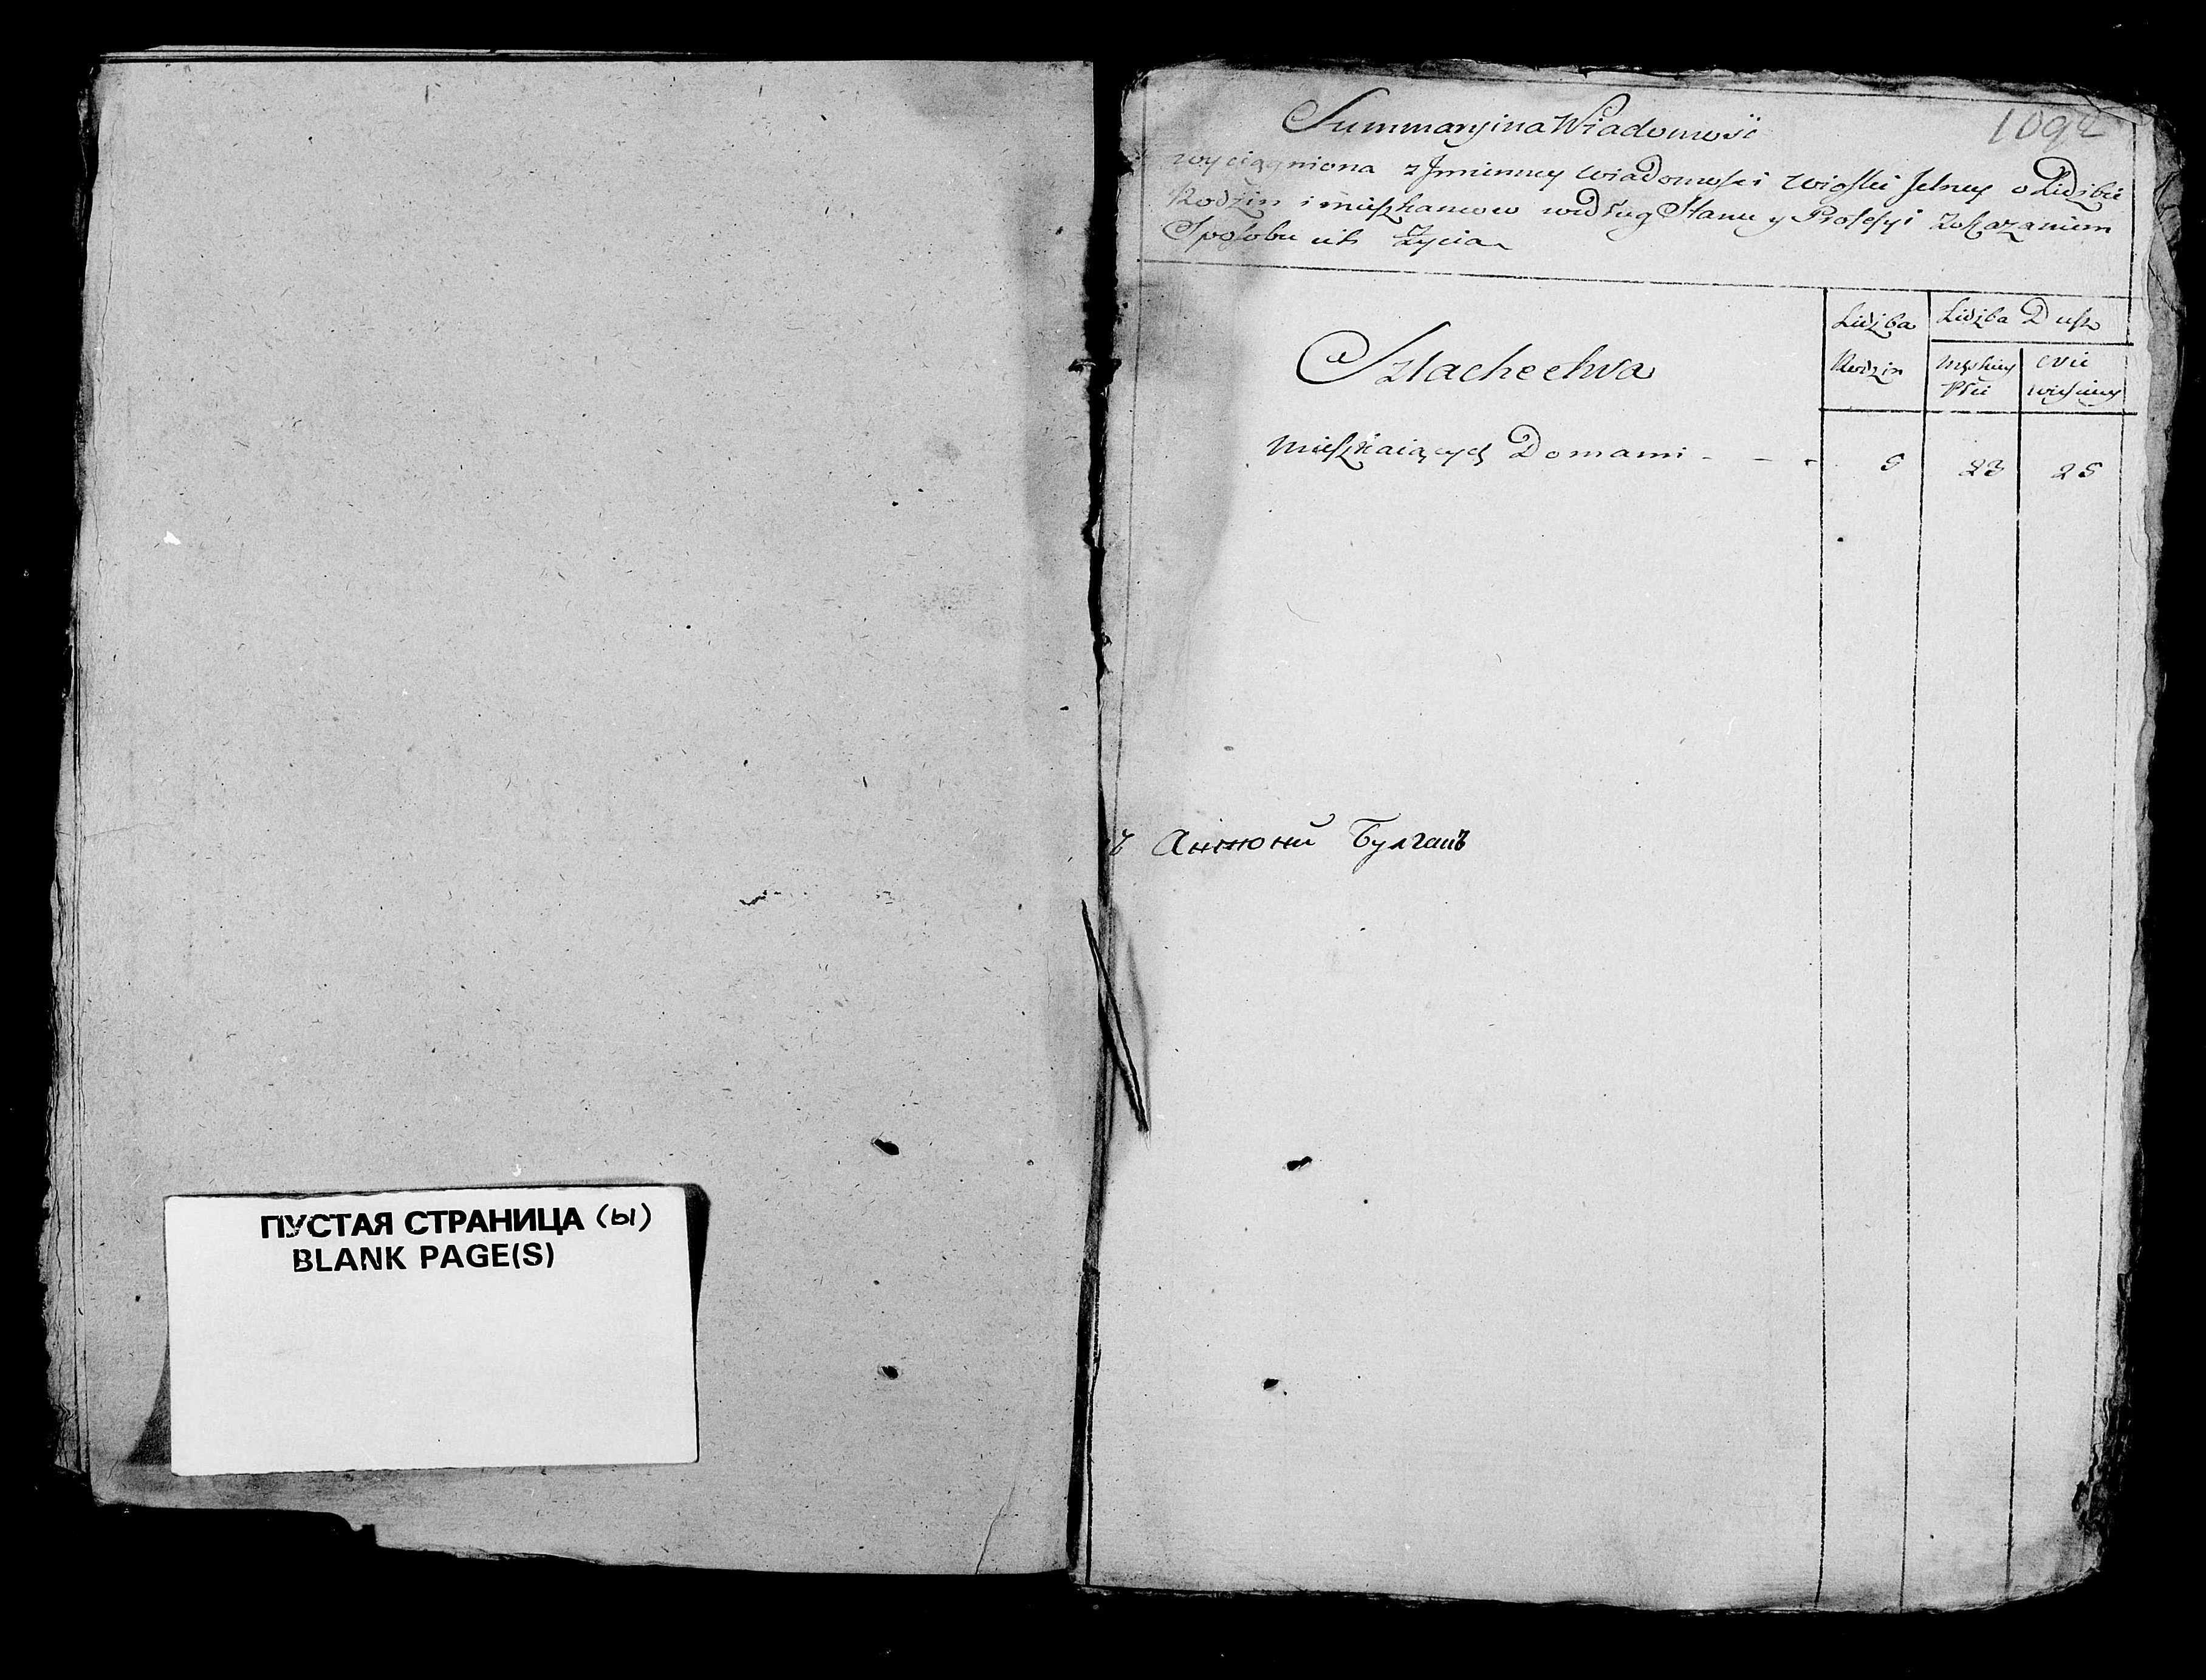 ПУСТАЯ СТРАНИЦА (ы)
BLANK PAGE(S)
Summaryina Wiadomość
wyciągniona z Jmienney wiadomości wioski Jelney o Lidzbie
Rodzin i mieszkancow według Stanu y Professyi zokazaniem
Sposobu ich Zycia
Lidzba Rodzin
Lidzba Dusz
męskiey Płci
nie wiesciey
Szlachectwa
mieszkaiących Domami - - - 9 23 25
ъ Антони Булгакъ